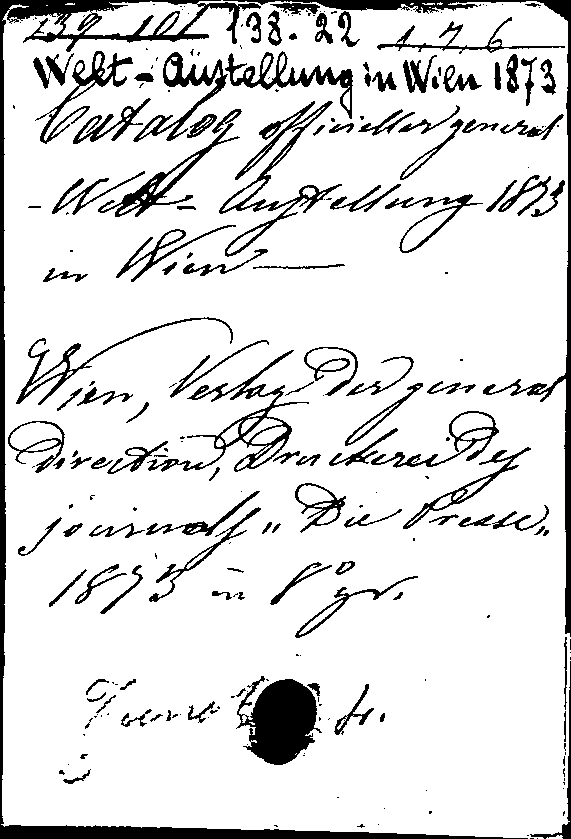 239-101 138.22 1.7.6
Welt-Austellung in Wien 1873
Catalog officieller general
-Welt- Austellung 1873
in Wien —
Wien, Verlag Der general
Direction, Druckerei Des
journals „ Die Presse „
1873 in 8° gr.